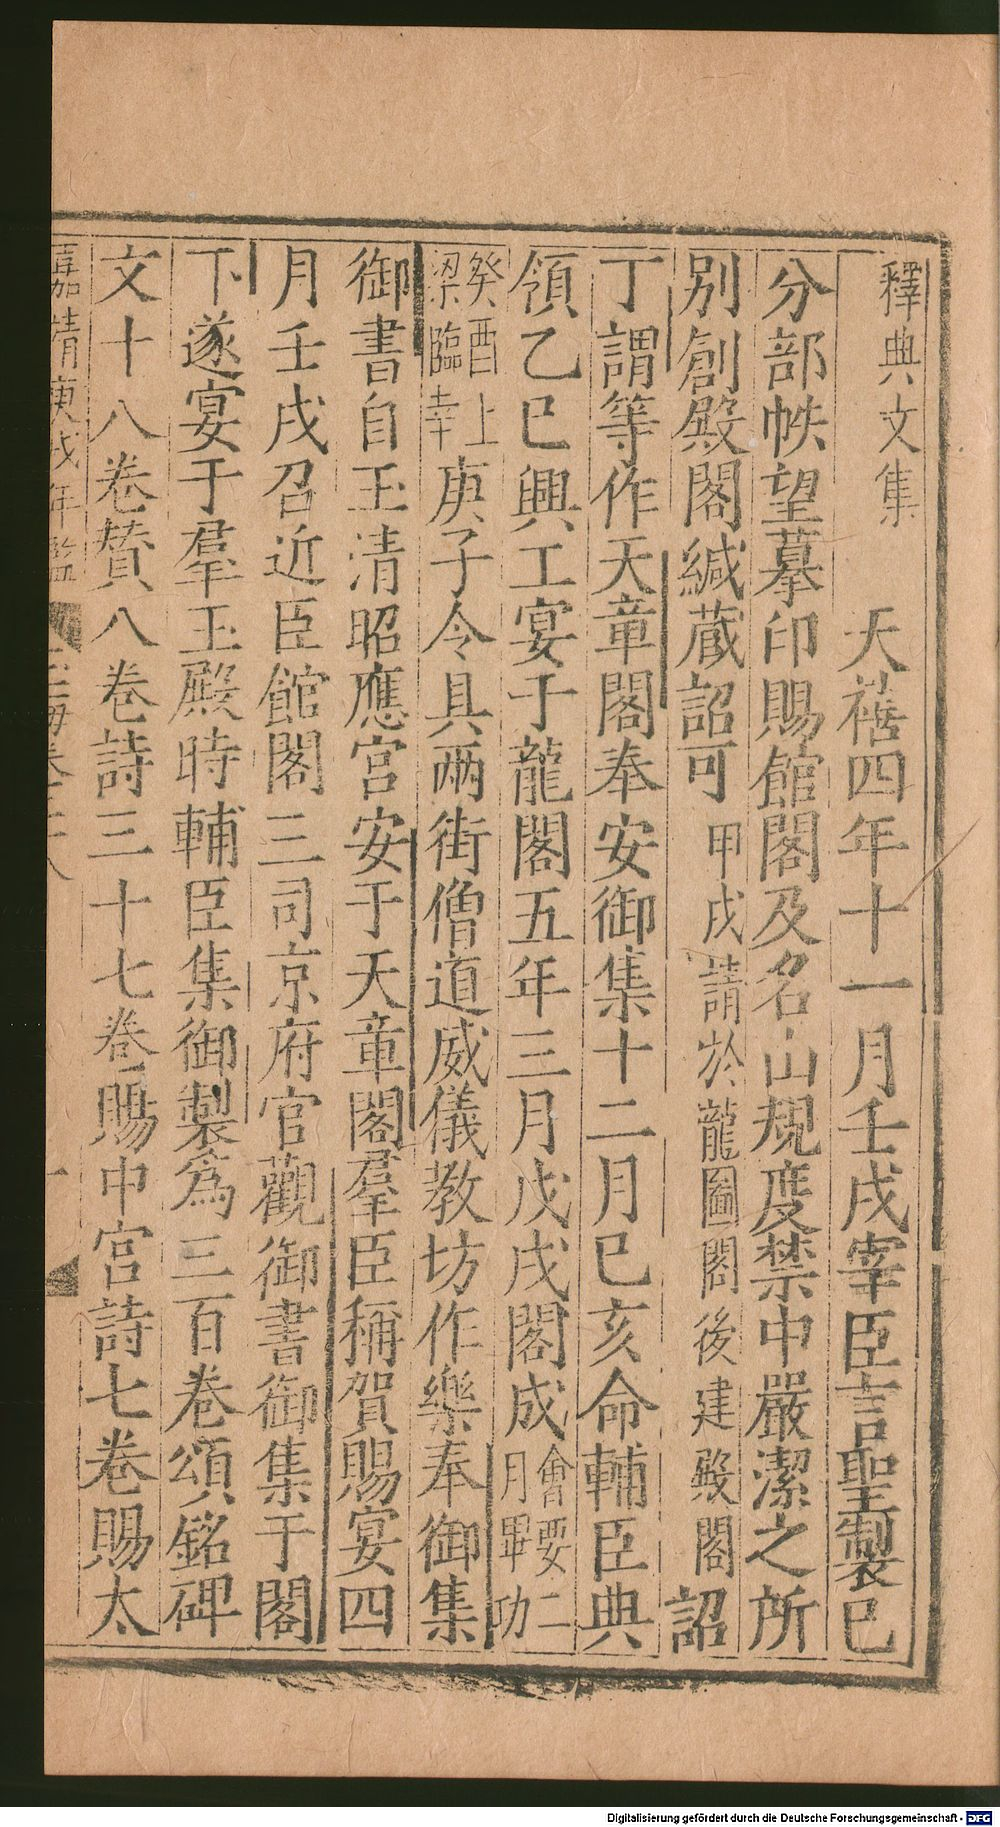 釋典文集
天禧四年十一月壬戌宰臣言聖製已
分部帙望摹印賜館閣及名山規度禁中嚴潔之所
別創殿閣緘蔵詔可甲戌請於龍圖閣後建殿閣詔
丁謂等作天章閣奉安御集十二月己亥命輔臣典
領乙巳興工宴于龍閣五年三月戊戌閣成會要二月畢功
癸酉上梁臨幸庚子令具兩街僧道威儀教坊作樂奉御集
御書自玉清昭應宮安于天章閣羣臣稱賀賜宴四
月壬戌召近臣館閣三司京府官觀御書御集于閣
下遂宴于羣玉殿時輔臣集御製爲三百卷頌銘碑
文十八卷賛八卷詩三十七卷賜中宮詩七卷賜太
嘉靖庚戌年監
Digitalisierung gefördert durch die Deutsche Forschungsgemeinschaft - DFG